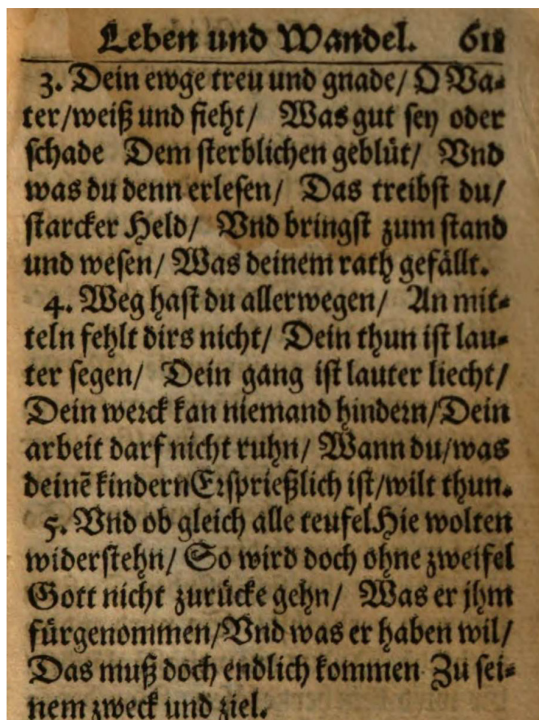 Leben und Wandel. 611
3. Dein ewge treu und gnade/ O Va-
ter/weiß und sieht/ Was gut sey oder
schade Dem sterblichen geblüt/ Vnd
was du denn erlesen/ Das treibst du/
starcker Held/ Vnd bringst zum stand
und wesen/ Was deinem rath gefällt.
4. Weg hast du allerwegen/ An mit-
teln fehlt dirs nicht/ Dein thun ist lau-
ter segen/ Dein gang ist lauter liecht/
Dein werck kan niemand hindern/Dein
arbeit darf nicht ruhn/ Wann du/was
deinē kindern Ersprießlich ist/wilt thun.
5. Vnd ob gleich alle teufel Hie wolten
widerstehn/ So wird doch ohne zweifel
Gott nicht zurücke gehn/ Was er jhm
fürgenommen/Vnd was er haben wil/
Das muß doch endlich kommen Zu sei-
nem zweck und ziel.